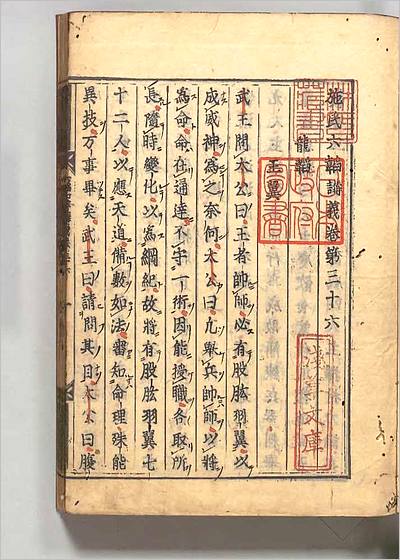 施氏六韜講義卷第三十六
龍韜
王翼
武王問太公曰王者帥師必有股肱羽翼
成威神爲之奈何太公曰凡舉兵帥師以將
爲命命在通達不守一術因能授職各取所
長隨時變化以爲綱紀故將有股肱羽翼七
十二人以應天道備數如法審知命理殊能
異技万事畢矣武王曰請問其目太公曰腹
淺草文庫